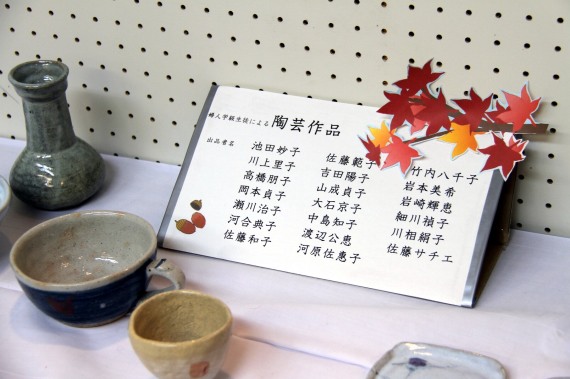 婦人学級生徒による 陶芸作品
出品者名
池田妙子
川上里子
高橋朋子
岡本貞子
瀬川治子
河合典子
佐藤和子
佐藤範子
吉田陽子
山成貞子
大石京子
中島知子
渡辺公恵
河原佐恵子
竹内八千子
岩本美希
岩崎輝恵
細川禎子
川相絹子
佐藤サチエ